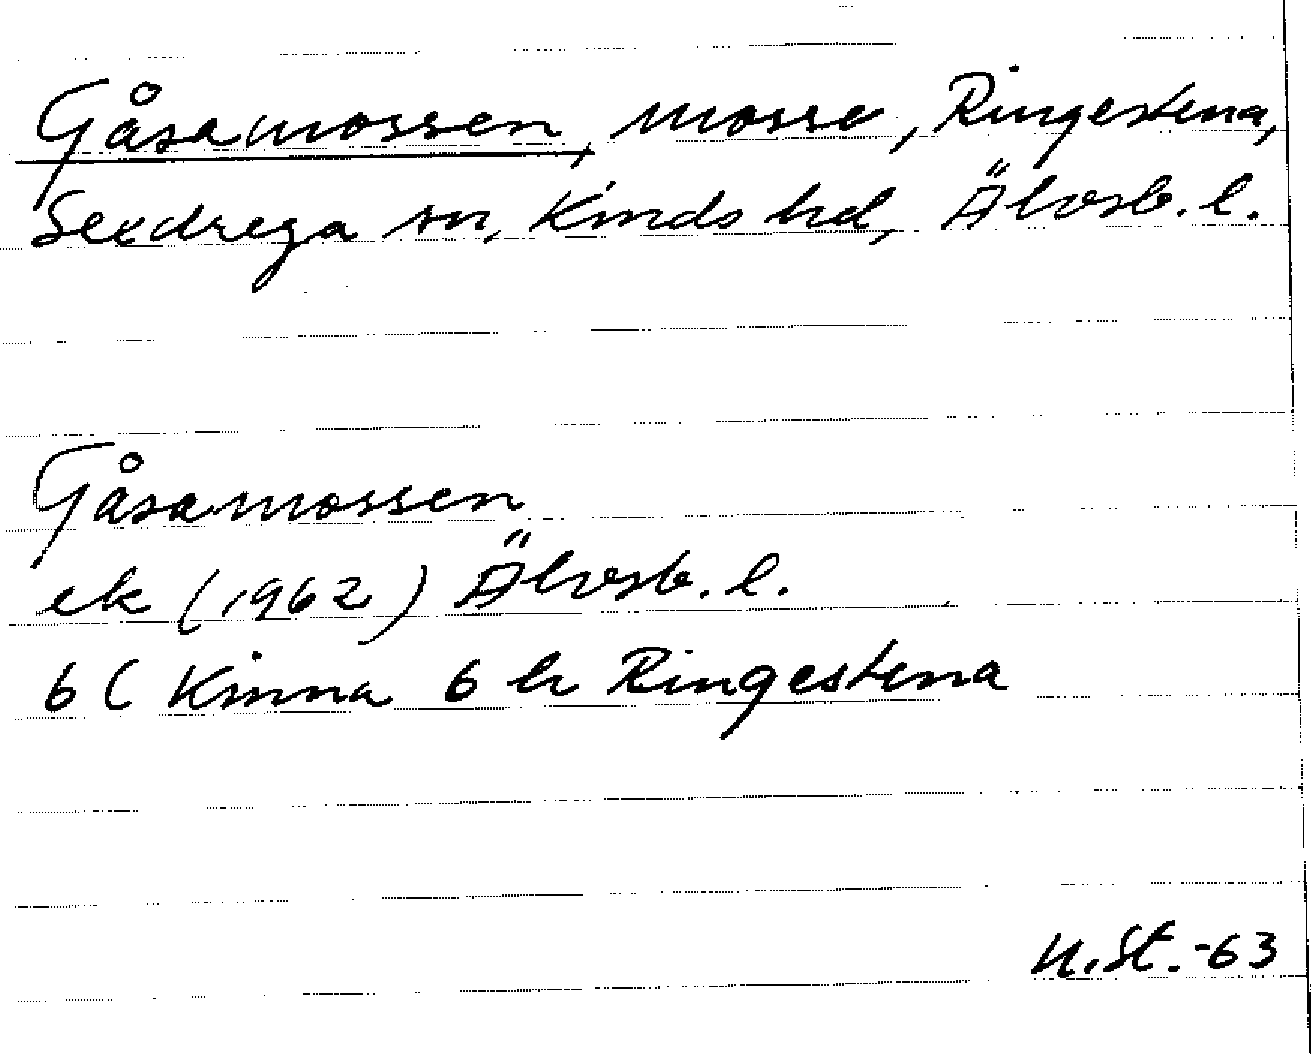 Gåsamossen, mosse, Ringestena,
Seedrega sn, Kinds hd, Älvsb. l.
Gåsamossen
ek (1962) Älvsb. l.
6 C Kinna 6 h Ringestena
N. St. -63